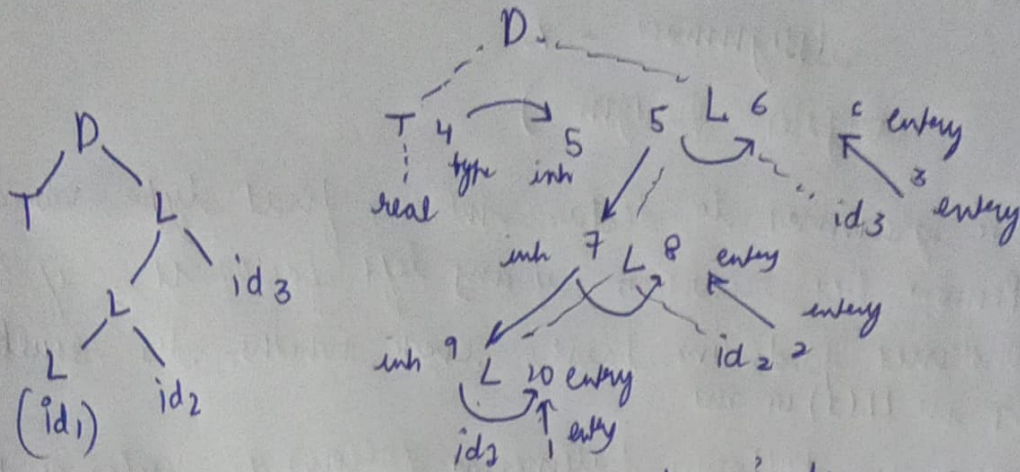 D
T L
L id3
L id2
(id1)
D
T 4 5 5 L 6 6 entry
type inh
real id3 3 entry
inh 7 L 8 entry
entry
inh 9 L 10 entry id2 2
1 entry